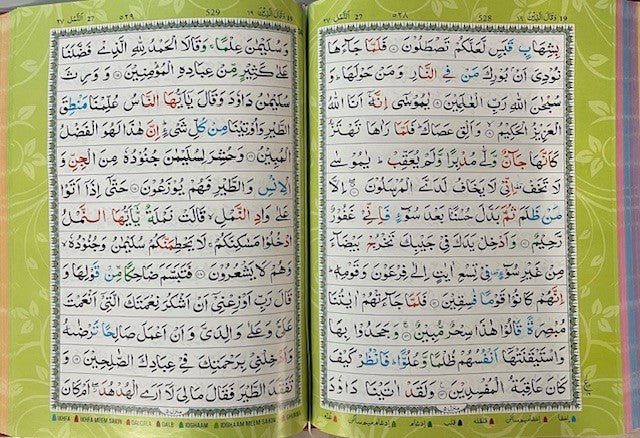 وَقَالَ الَّذِيْنَ ١٩ 19 528 ٥٢٨ اَلنَّمْل ٢٧ 27
بِشِهَابٍ قَبَسٍ لَّعَلَّكُمْ تَصْطَلُوْنَ ۝ فَلَمَّا جَآءَهَا
نُوْدِىَ اَنْۢ بُوْرِكَ مَنْ فِى النَّارِ وَمَنْ حَوْلَهَا ؕ وَ
سُبْحٰنَ اللّٰهِ رَبِّ الْعٰلَمِيْنَ ۝ يٰمُوْسٰٓى اِنَّهٗۤ اَنَا اللّٰهُ
الْعَزِيْزُ الْحَكِيْمُ ۝ وَاَلْقِ عَصَاكَ ؕ فَلَمَّا رَاٰهَا تَهْتَزُّ
كَاَنَّهَا جَآنٌّ وَّلّٰى مُدْبِرًا وَّلَمْ يُعَقِّبْ ؕ يٰمُوْسٰى
لَا تَخَفْ اِنِّىْ لَا يَخَافُ لَدَىَّ الْمُرْسَلُوْنَ ۝ اِلَّا
مَنْ ظَلَمَ ثُمَّ بَدَّلَ حُسْنًۢا بَعْدَ سُوْٓءٍ فَاِنِّىْ غَفُوْرٌ
رَّحِيْمٌ ۝ وَاَدْخِلْ يَدَكَ فِىْ جَيْبِكَ تَخْرُجْ بَيْضَآءَ
مِنْ غَيْرِ سُوْٓءٍ فِىْ تِسْعِ اٰيٰتٍ اِلٰى فِرْعَوْنَ وَقَوْمِهٖ ؕ
اِنَّهُمْ كَانُوْا قَوْمًا فٰسِقِيْنَ ۝ فَلَمَّا جَآءَتْهُمْ اٰيٰتُنَا
مُبْصِرَةً قَالُوْا هٰذَا سِحْرٌ مُّبِيْنٌ ۝ وَجَحَدُوْا بِهَا
وَاسْتَيْقَنَتْهَاۤ اَنْفُسُهُمْ ظُلْمًا وَّعُلُوًّا ؕ فَانْظُرْ كَيْفَ
كَانَ عَاقِبَةُ الْمُفْسِدِيْنَ ۝ وَلَقَدْ اٰتَيْنَا دَاوٗدَ
اخفا اخفا میم ساکن قلقله قلب ادغام ادغام میم ساکن غنه
وَقَالَ الَّذِيْنَ ١٩ 19 529 ٥٢٩ اَلنَّمْل ٢٧ 27
وَسُلَيْمٰنَ عِلْمًا ۚ وَقَالَا الْحَمْدُ لِلّٰهِ الَّذِىْ فَضَّلَنَا
عَلٰى كَثِيْرٍ مِّنْ عِبَادِهِ الْمُؤْمِنِيْنَ ۝ وَوَرِثَ
سُلَيْمٰنُ دَاوٗدَ وَقَالَ يٰۤاَيُّهَا النَّاسُ عُلِّمْنَا مَنْطِقَ
الطَّيْرِ وَاُوْتِيْنَا مِنْ كُلِّ شَىْءٍ ؕ اِنَّ هٰذَا لَهُوَ الْفَضْلُ
الْمُبِيْنُ ۝ وَحُشِرَ لِسُلَيْمٰنَ جُنُوْدُهٗ مِنَ الْجِنِّ وَ
الْاِنْسِ وَالطَّيْرِ فَهُمْ يُوْزَعُوْنَ ۝ حَتّٰٓى اِذَاۤ اَتَوْا
عَلٰى وَادِ النَّمْلِ ۙ قَالَتْ نَمْلَةٌ يّٰۤاَيُّهَا النَّمْلُ
ادْخُلُوْا مَسٰكِنَكُمْ ۚ لَا يَحْطِمَنَّكُمْ سُلَيْمٰنُ وَجُنُوْدُهٗ ۙ
وَهُمْ لَا يَشْعُرُوْنَ ۝ فَتَبَسَّمَ ضَاحِكًا مِّنْ قَوْلِهَا وَ
قَالَ رَبِّ اَوْزِعْنِىْۤ اَنْ اَشْكُرَ نِعْمَتَكَ الَّتِىْۤ اَنْعَمْتَ
عَلَىَّ وَعَلٰى وَالِدَىَّ وَاَنْ اَعْمَلَ صَالِحًا تَرْضٰىهُ
وَاَدْخِلْنِىْ بِرَحْمَتِكَ فِىْ عِبَادِكَ الصّٰلِحِيْنَ ۝ وَ
تَفَقَّدَ الطَّيْرَ فَقَالَ مَا لِىَ لَاۤ اَرَى الْهُدْهُدَ ۖ اَمْ كَانَ
IKHFA IKHFA MEEM SAKIN QALQALA QALB IDGHAAM IDGHAAM MEEM SAKIN GHUNNA